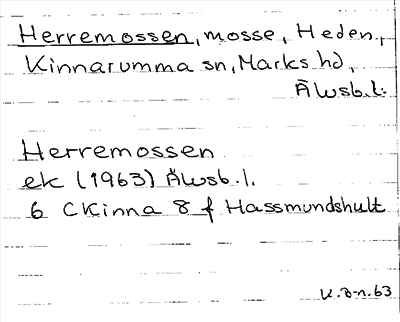 Herremossen, mosse, Heden,
Kinnarumma sn, Marks hd,
Älvsb.l.
Herremossen
ek (1963) Älvsb.l.
6 CKinna 8 f Hassmundshult
K.B-n.63